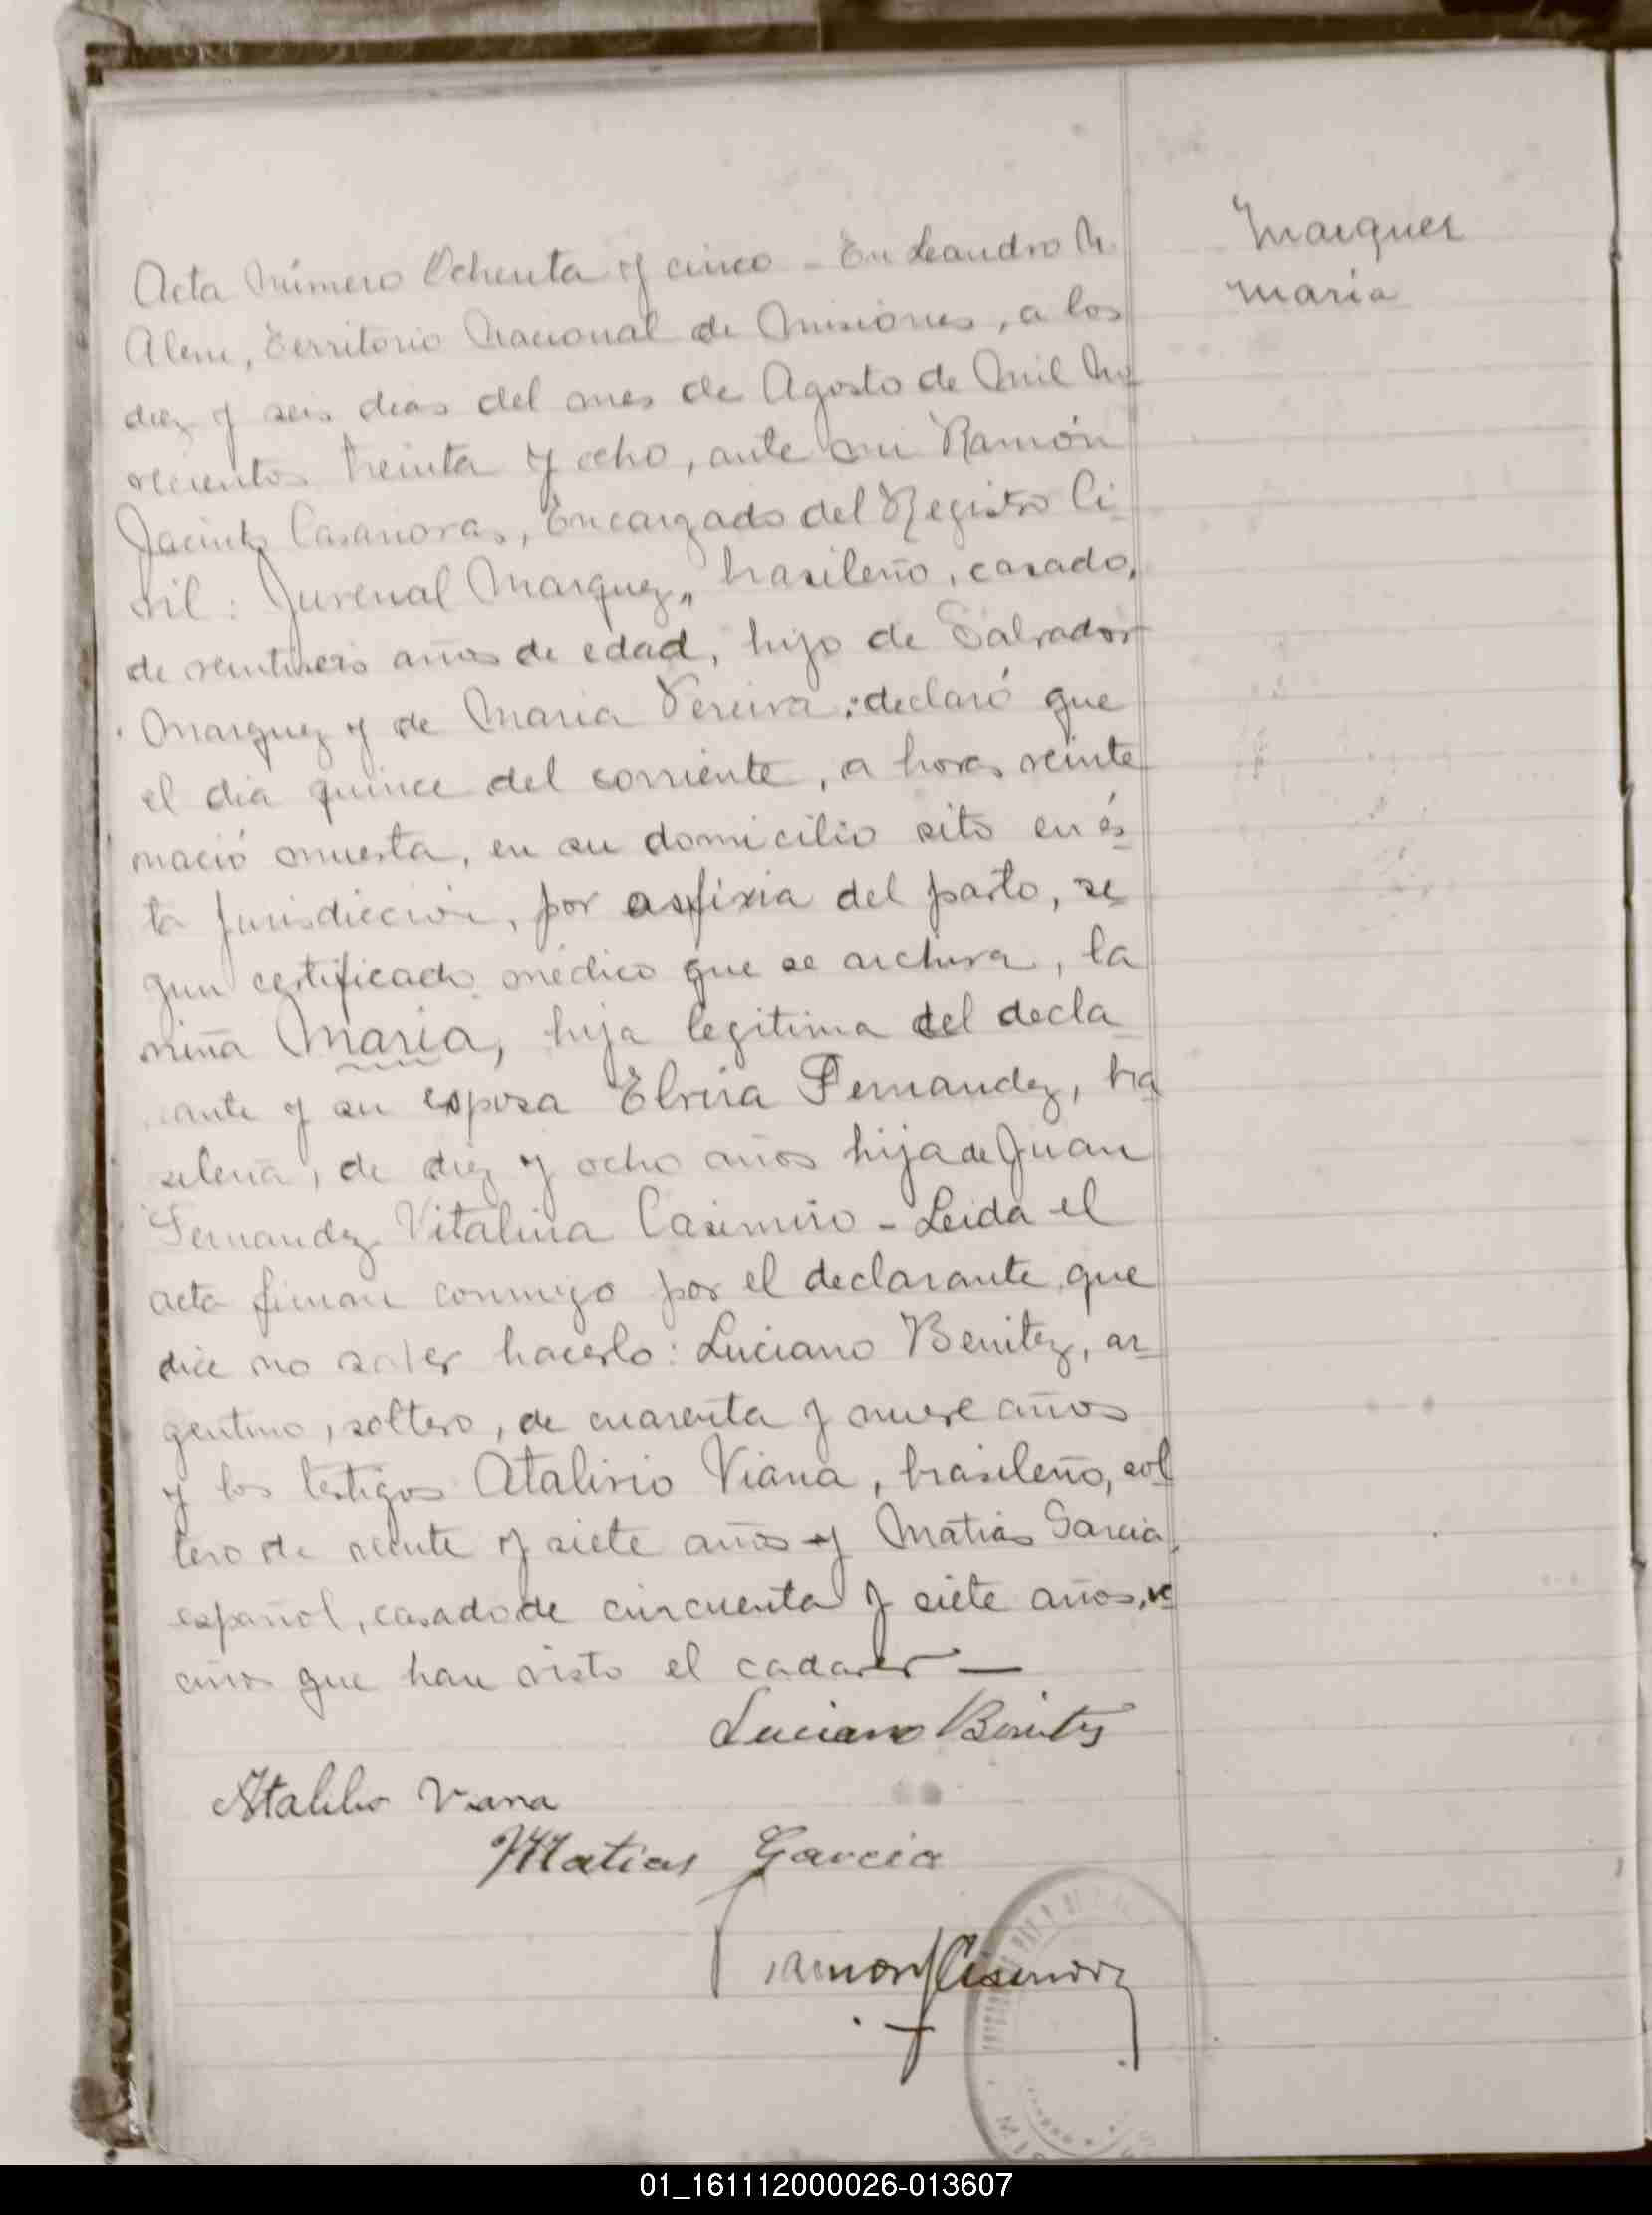 Marquez
Maria
Acta Número Ochenta y cinco - En Leandro N.
Alem, Territorio Nacional de Misiones, a los
diez y seis dias del mes de Agosto de Mil No
vecientos treinta y ocho, ante mi Ramón
Jacinto Casanovas, Encargado del Registro Ci
vil: Juvenal Marquez, brasileño, casado,
de veintiseis años de edad, hijo de Salvador
Marquez y de Maria Pereira: declaró que
el dia quince del corriente, a horas veinte
nació muerta, en su domicilio sito en és
ta Jurisdiccion, por asfixia del parto, se
gun certificado médico que se archiva, la
niña Maria, hija legitima del decla
rante y su esposa Elvira Fernandez, bra
sileña, de diez y ocho años hija de Juan
Fernandez Vitalina Casimiro - Leida el
acta firman conmigo por el declarante que
dice no saber hacerlo: Luciano Benitez, ar
gentino, soltero, de cuarenta y nueve años
y los testigos Atalivio Viana, brasileño, sol
tero de veinte y siete años y Matias Garcia,
español, casado de cincuenta y siete años, ve
cinos que han visto el cadaver —
Luciano Benitez
Viana
Matias Garcia
01_161112000026-013607